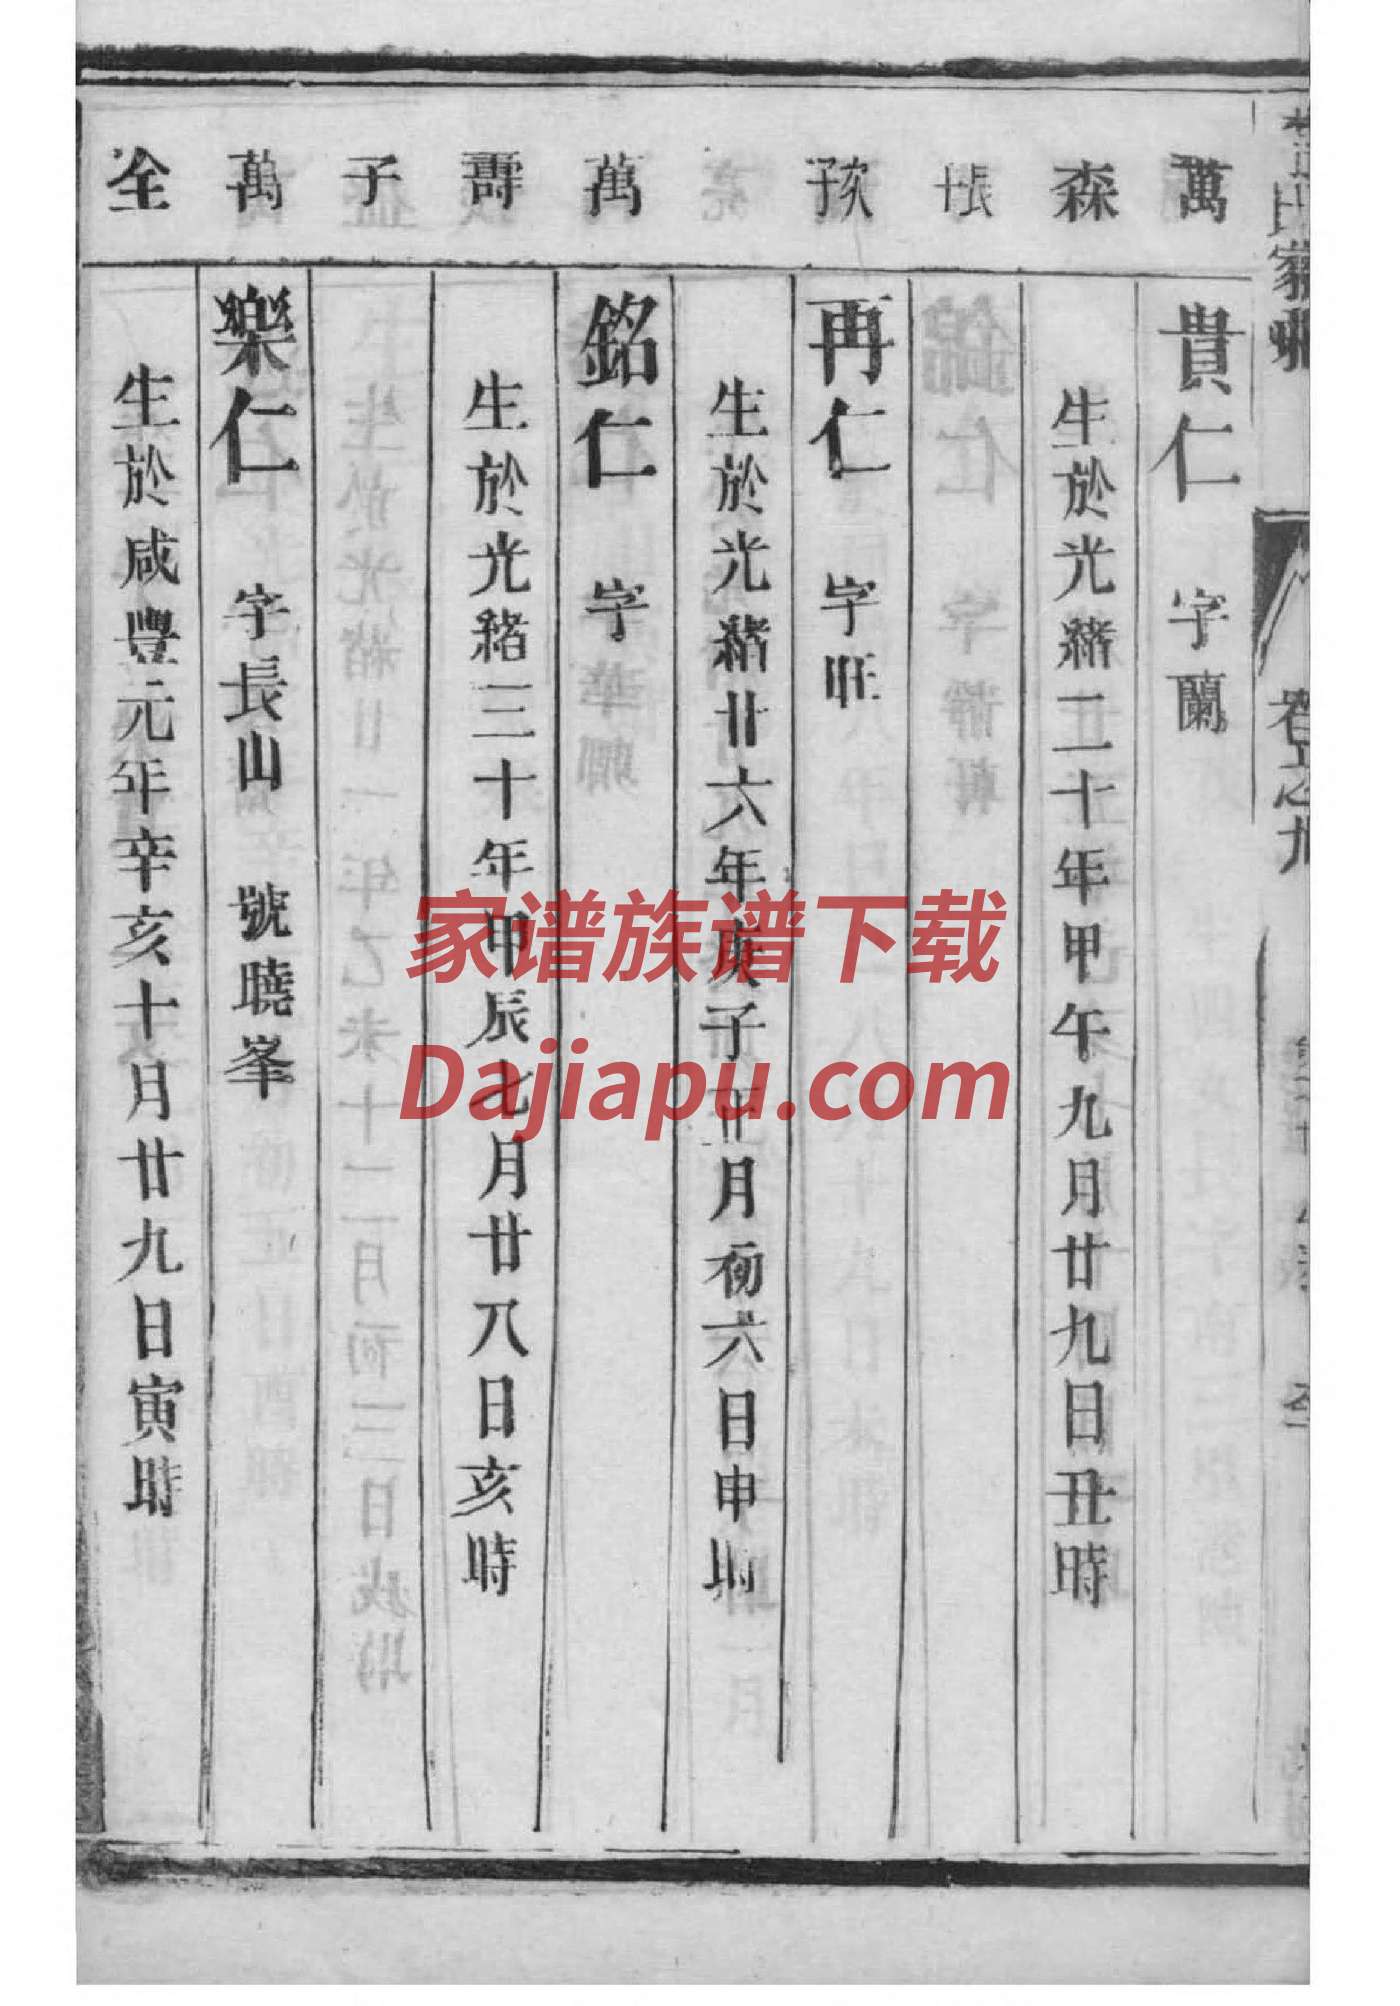 萬 貴仁 字蘭
森 生於光緒二十年甲午九月廿九日丑時
長
次子 再仁 字旺
生於光緒廿六年庚子十一月初六日申時
萬 銘仁 字
壽 生於光緒三十年甲辰七月廿八日亥時
子
萬 樂仁 字長山 號曉峯
全 生於咸豐元年辛亥十月廿九日寅時
氏家乘
卷
家谱族谱下载
Dajiapu.com